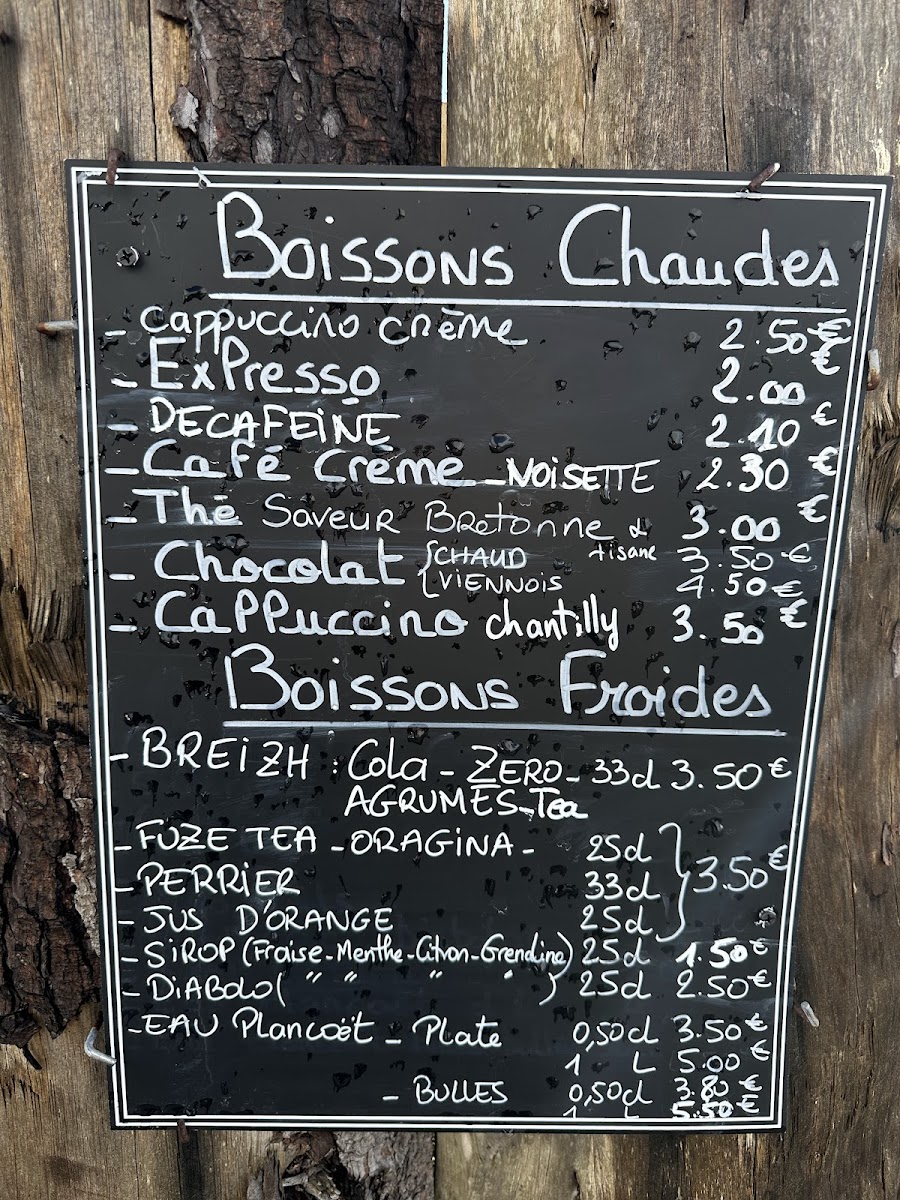 Boissons Chaudes
- Cappuccino crème 2.50€
- ExPresso 2.00 €
- DECAFEINE 2.10 €
- Café Crème - NOISETTE 2.30 €
- Thé Saveur Bretonne & tisane 3.00 €
- Chocolat { CHAUD 3.50 €
VIENNOIS 4.50 €
- CaPPuccino chantilly 3.50 €
Boissons Froides
- BREIZH : Cola - ZERO - 33cl 3.50 €
AGRUMES - Tea
- FUZE TEA - ORAGINA - 25cl
- PERRIER 33cl } 3.50 €
- JUS D'ORANGE 25cl
- SIROP (Fraise - Menthe - Citron - Grendine) 25cl 1.50 €
- DiABOLO ( " " " " ) 25cl 2.50 €
- EAU Plancoët - Plate 0,50cl 3.50 €
1 L 5.00 €
- BULLES 0,50cl 3.80 €
1 L 5.50 €